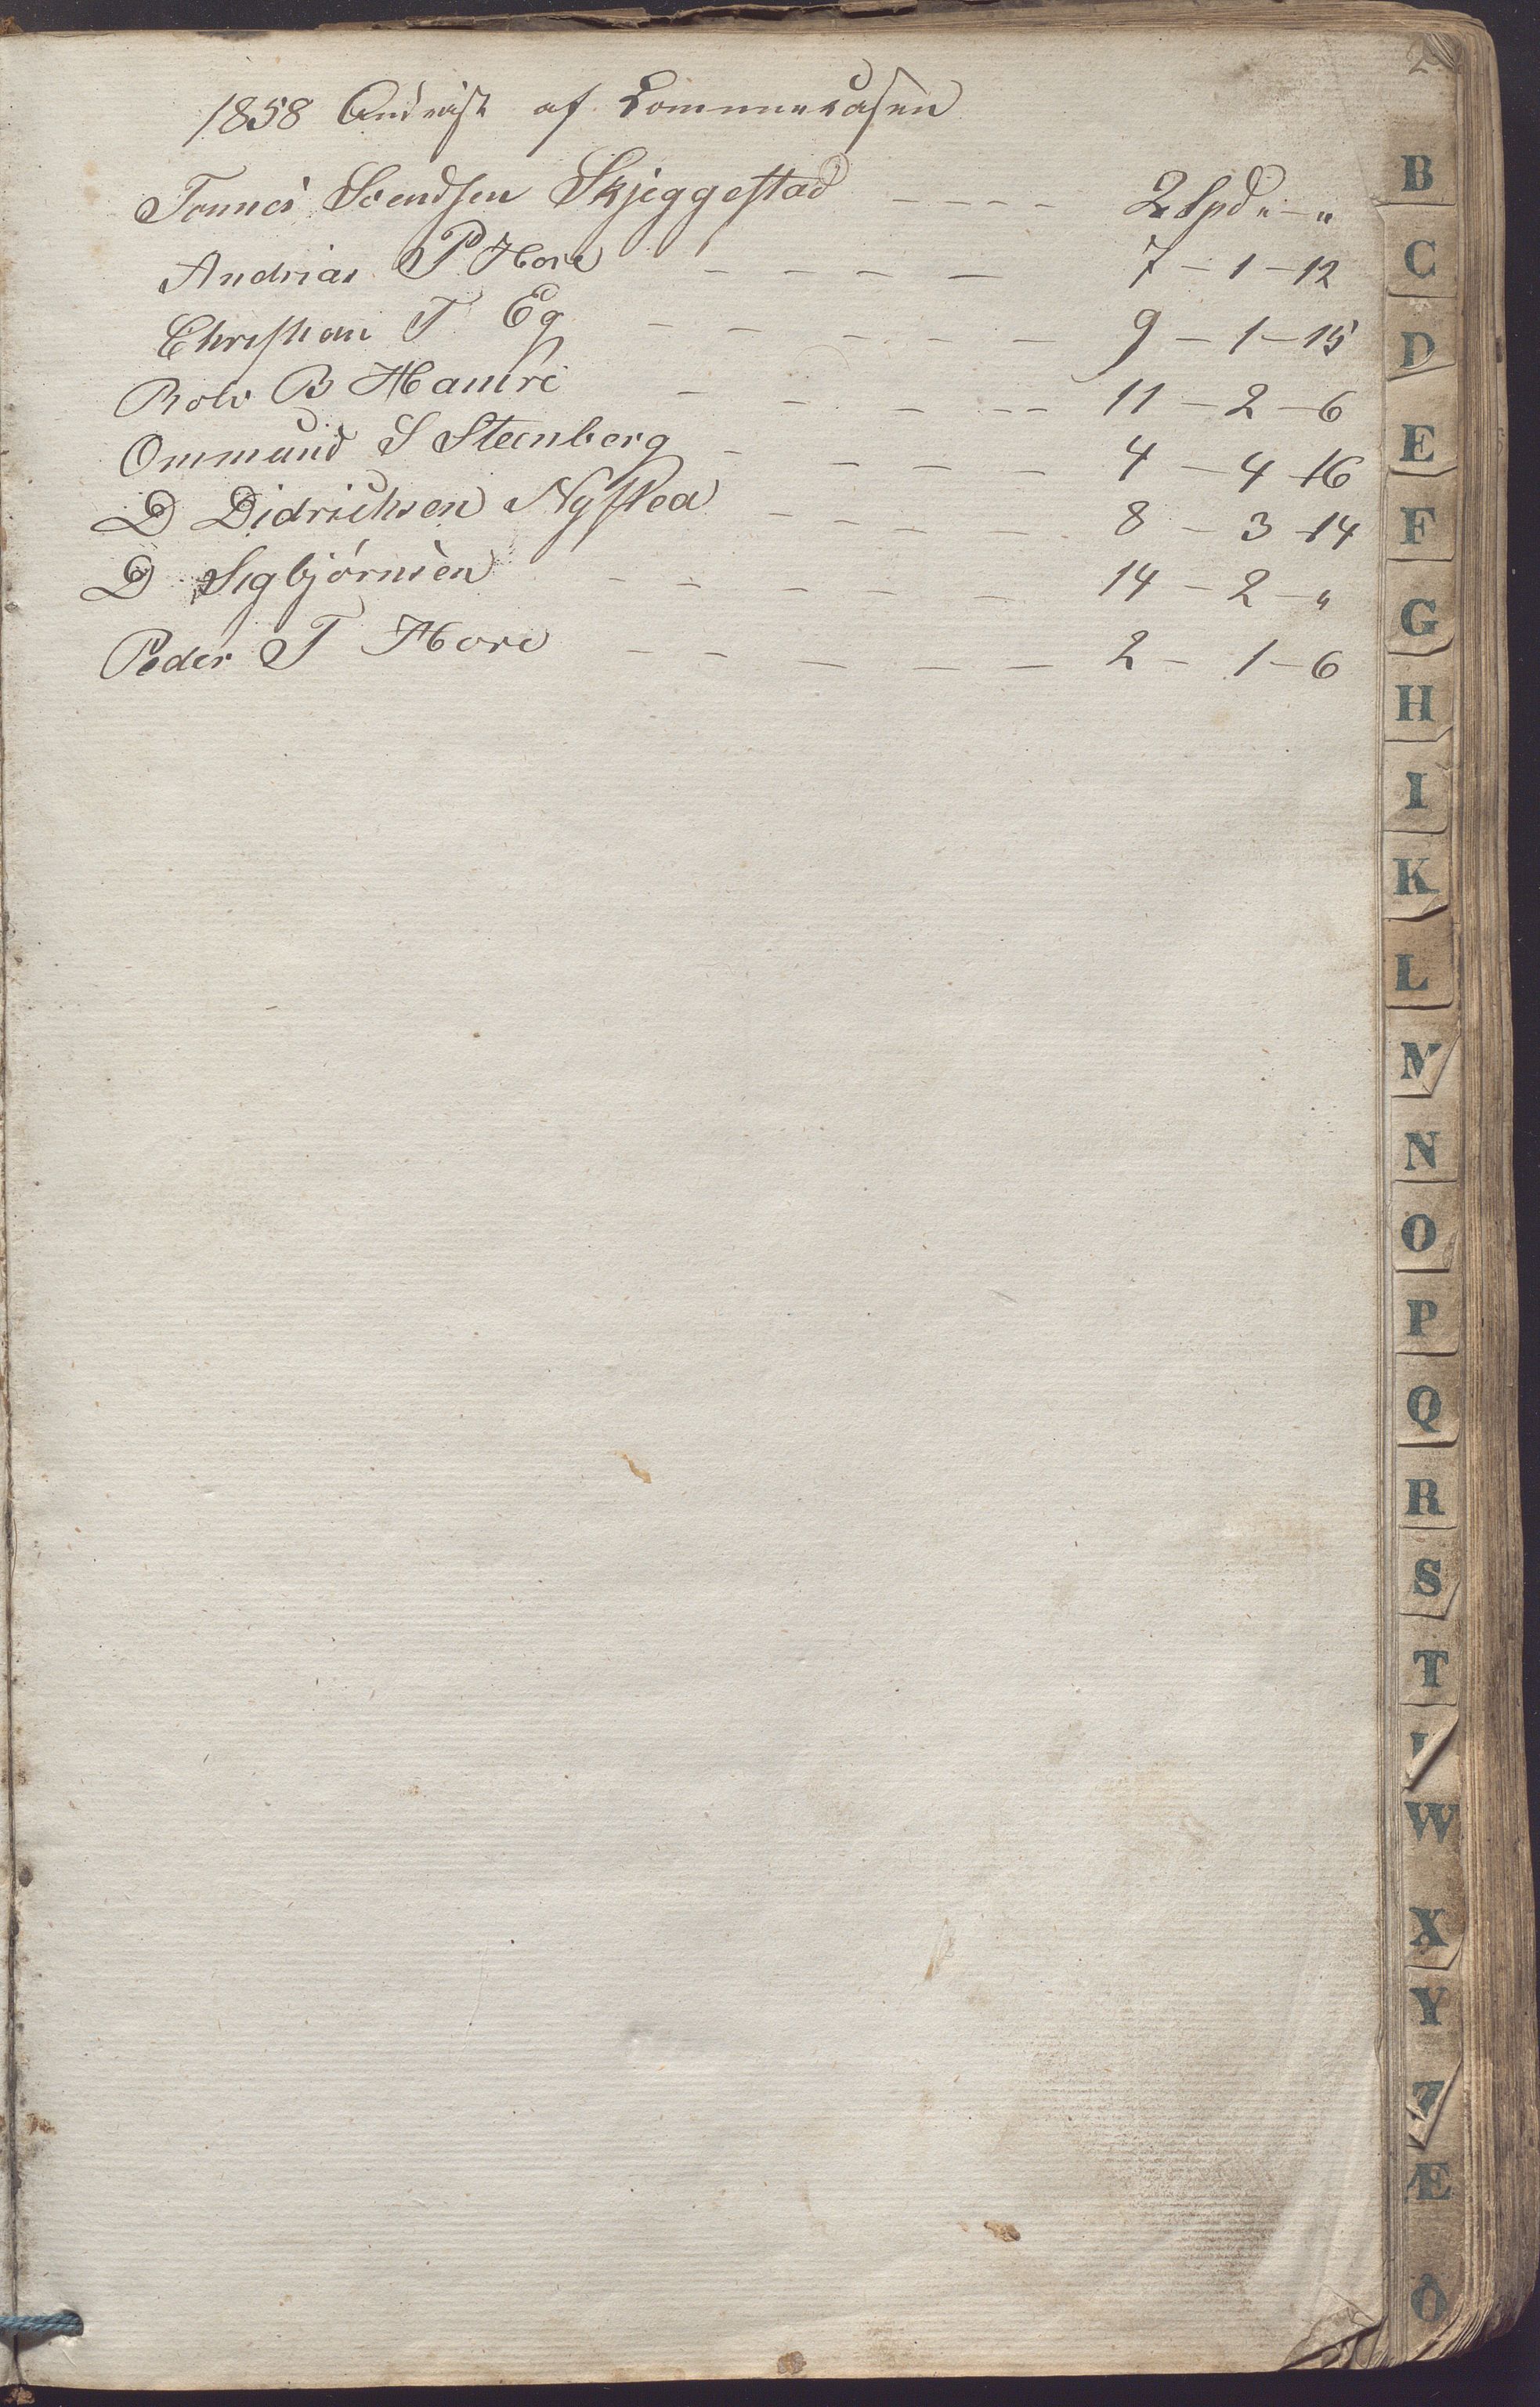 2
1858 Andvist af Communekasen
Tonnes Svendsen Skjeggestad - - - - 2 Spd " - "
Andrias P Hove - - - - 7 - 1 - 12
Christian T Eg - - - - - 9 - 1 - 15
Rolv B Hamre - - - - - 11 - 2 - 6
Ommund S Steenberg - - - - 4 - 4 - 16
D Didrichsen Nysted - - - - - 8 - 3 - 14
D Sigbjørnsen - - - - - 14 - 2 - "
Peder T Hove - - - - - 2 - 1 - 6
B
C
D
E
F
G
H
I
K
L
M
N
O
P
Q
R
S
T
W
X
Y
Z
Æ
Ö